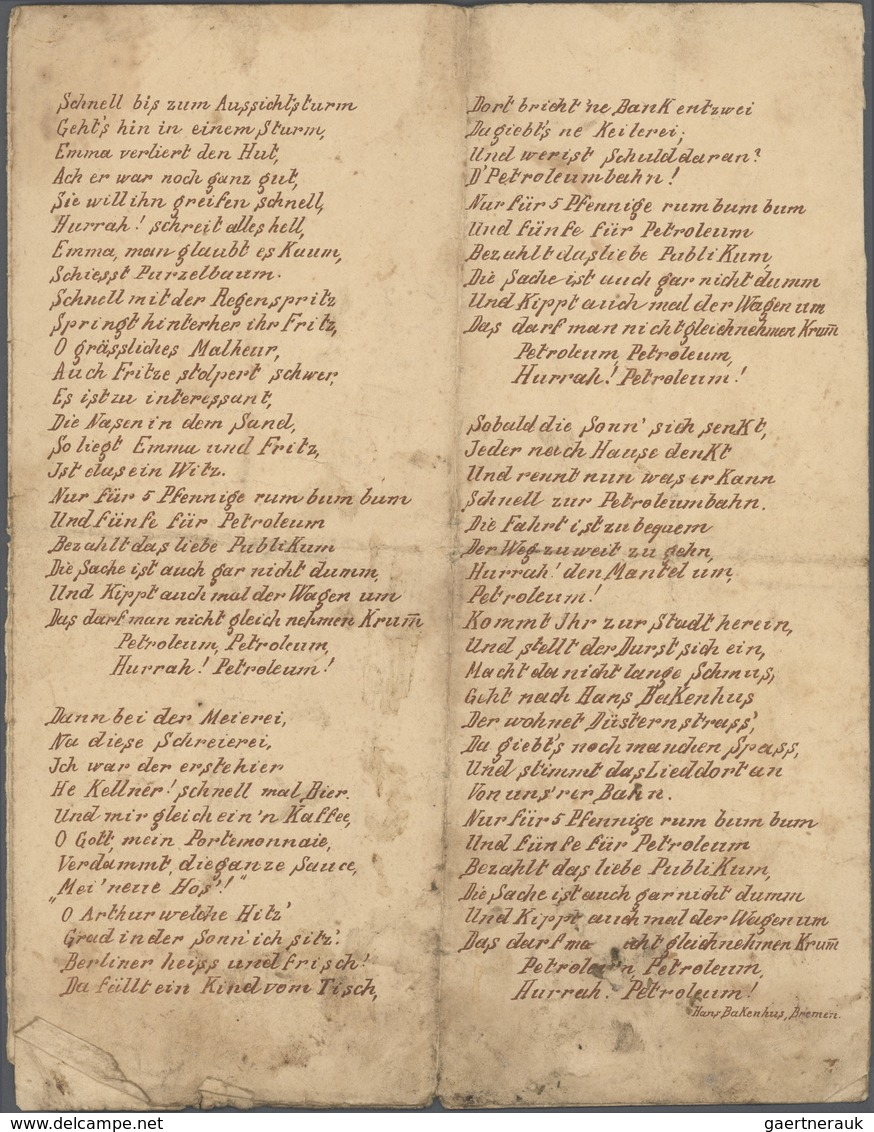 Schnell bis zum Aussichtsturm
Geht's hin in einem Sturm,
Emma verliert den Hut,
Ach er war noch ganz gut,
Sie will ihn greifen schnell,
Hurrah! schreit alles hell,
Emma, man glaubt es Kaum,
Schiesst Purzelbaum.
Schnell mit der Regenspritz
Springt hinterher ihr Fritz,
O grässliches Malheur,
Auch Fritze stolpert schwer,
Es ist zu interessant,
Die Nasen in dem Sand,
So liegt Emma und Fritz,
Ist das ein Witz.
Nur für 5 Pfennige rum bum bum
Und fünfe für Petroleum
Bezahlt das liebe PubliKum
Die Sache ist auch gar nicht dumm,
Und Kippt auch mal der Wagen um
Das darf man nicht gleich nehmen Krum̅
Petroleum, Petroleum,
Hurrah! Petroleum!

Dann bei der Meierei,
Na diese Schreierei,
Ich war der erste hier
He Kellner! schnell mal Bier.
Und mir gleich ein'n Kaffee,
O Gott, mein Portemonnaie,
Verdammt, die ganze Sauce,
"Mei' neue Hos'!"
O Arthur welche Hitz'
Grad in der Sonn' ich sitz'.
Berliner heiss und frisch!
Da fällt ein Kind vom Tisch,

Dort bricht 'ne BanK entzwei
Da giebt's ne Keilerei;
Und wer ist Schuld daran?
D'Petroleumbahn!
Nur für 5 Pfennige rum bum bum
Und fünfe für Petroleum
Bezahlt das liebe PubliKum,
Die Sache ist auch gar nicht dumm
Und Kippt auch mal der Wagen um
Das darf man nicht gleich nehmen Krum̅
Petroleum, Petroleum,
Hurrah! Petroleum!

Sobald die Sonn' sich senKt,
Jeder nach Hause denKt
Und rennt nun was er Kann
Schnell zur Petroleumbahn.
Die Fahrt ist zu bequem
Der Weg zu weit zu gehn,
Hurrah! den Mantel um,
Petroleum!
Kommt Ihr zur Stadt herein,
Und stellt der Durst sich ein,
Macht da nicht lange Schmus,
Geht nach Hans BaKenhus
Der wohnet Düsternstrass',
Da giebt's noch manchen Spass,
Und stimmt das Lied dort an
Von uns'rer Bahn.
Nur für 5 Pfennige rum bum bum
Und fünfe für Petroleum
Bezahlt das liebe PubliKum,
Die Sache ist auch gar nicht dumm
Und Kippt auch mal der Wagen um
Das darf gleich nehmen Krum̅
Petroleum, Petroleum,
Hurrah! Petroleum!
Hans BaKenhus, Bremen.
www.delcampe.net
gaertnerauk